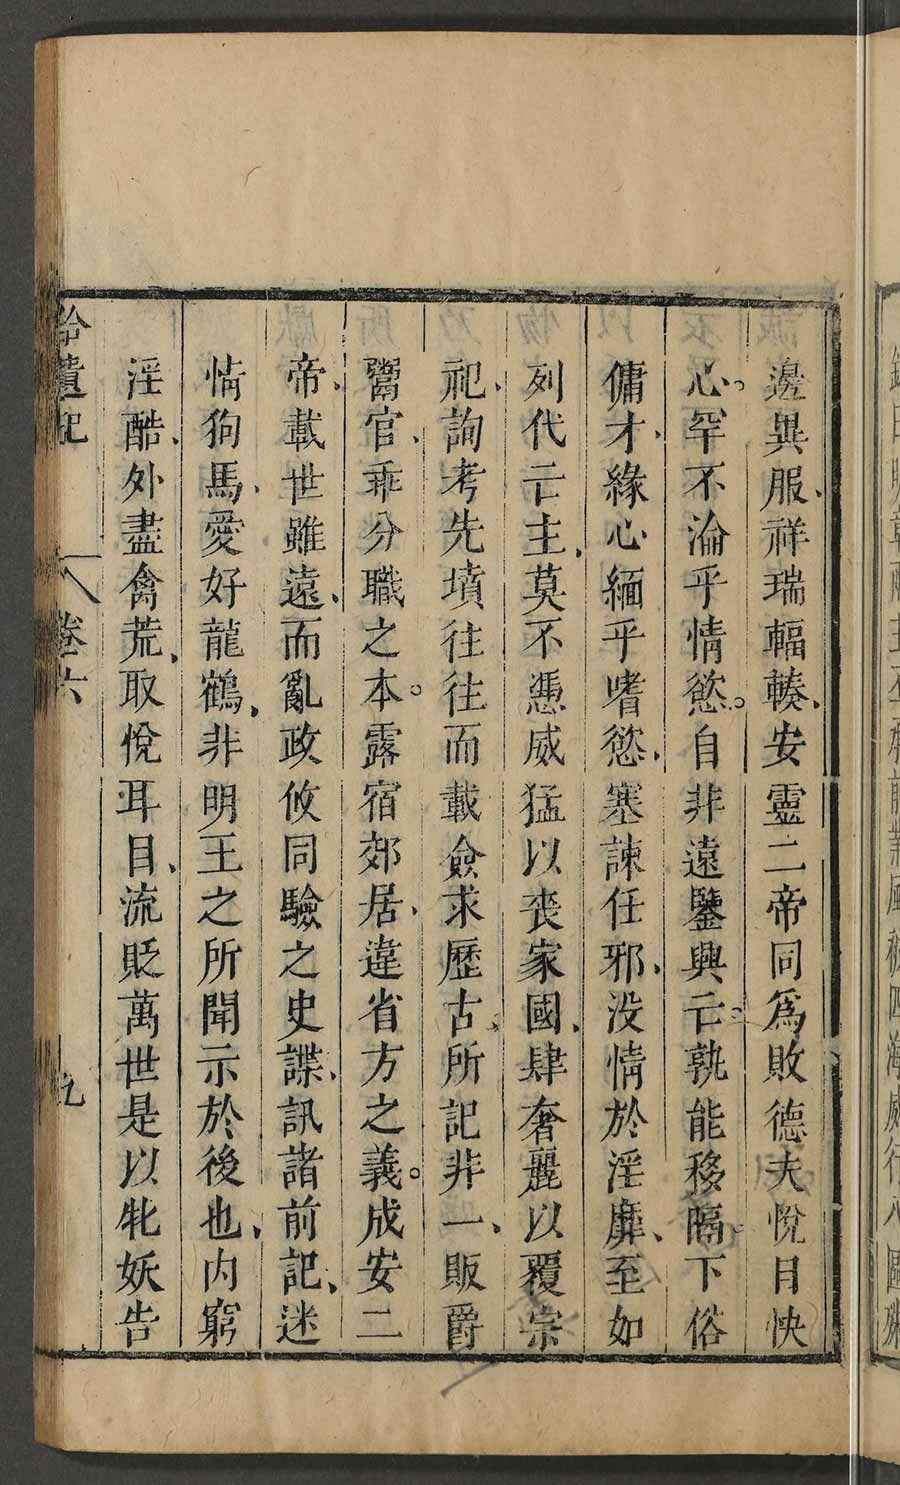 邊異服祥瑞輻輳安靈二帝同爲敗德夫悅目快
心罕不淪乎情慾自非遠鑒興亡孰能移隔下俗
傭才緣心緬乎嗜慾塞諫任邪没情於淫靡至如
列代亡主莫不憑威猛以喪家國肆奢麗以覆宗
祀詢考先墳往往而載僉求歷古所記非一販爵
鬻官乖分職之本露宿郊居違省方之義成安二
帝載世雖遠而亂政攸同驗之史諜訊諸前記迷
情狗馬愛好龍鶴非明王之所聞示於後也内窮
淫酷外盡禽荒取悅耳目流貶萬世是以牝妖告
拾遺記 卷六 九